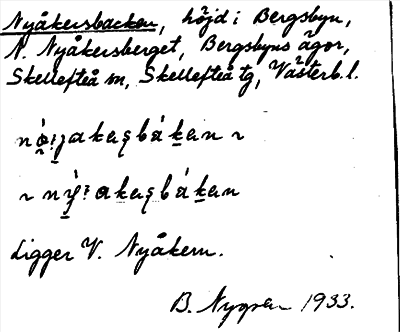 Nyåkersbacken, höjd i Bergsbyn,
N. Nyåkersberget, Bergsbyns ägor,
Skellefteå sn, Skellefteå tg, Västerb. l.
Ligger V. Nyåkern.
B. Nygren 1933.